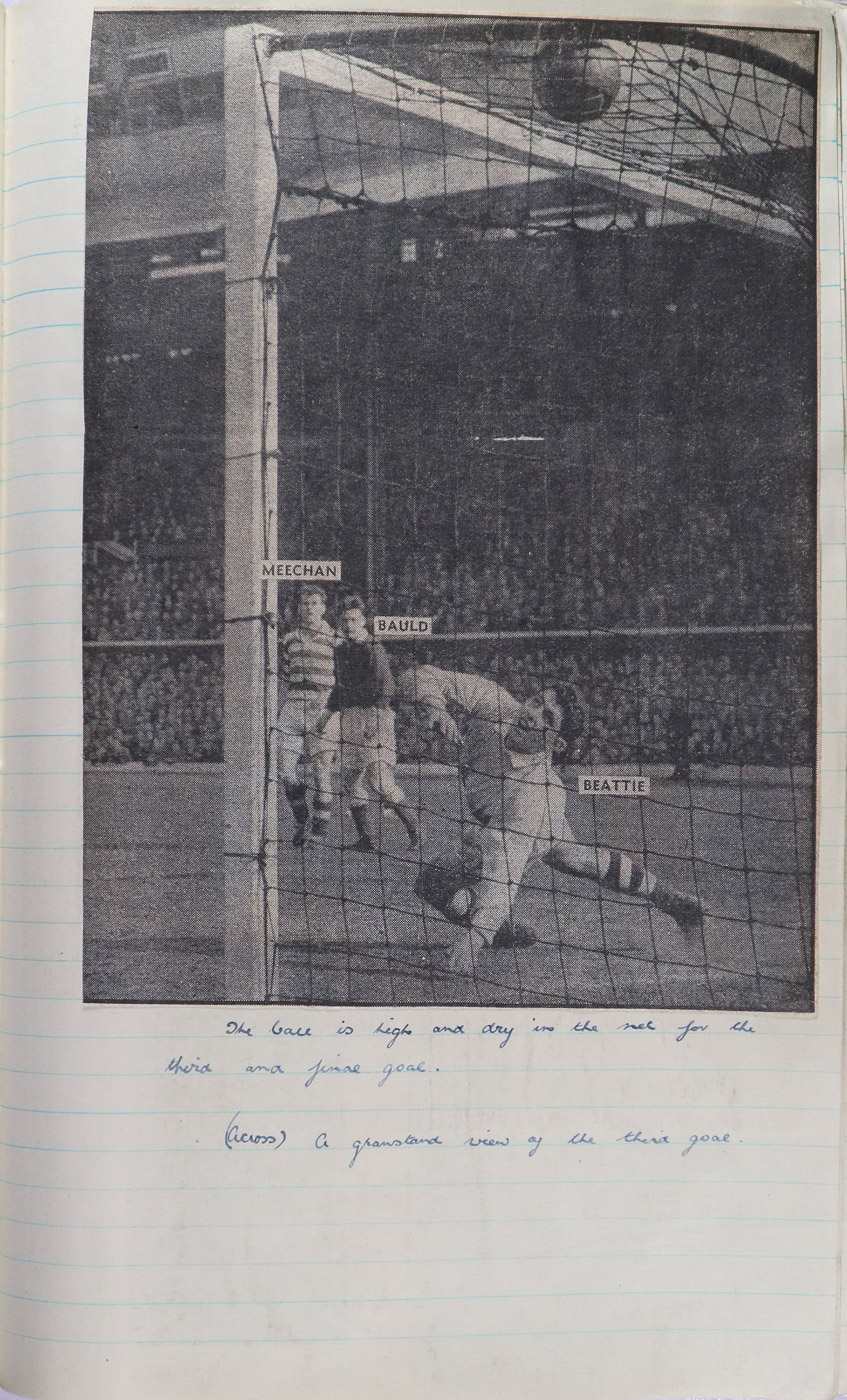 MEECHAN
BAULD
BEATTIE
The ball is high and dry in the net for the
third and final goal.
(Across) A granstand view of the third goal.